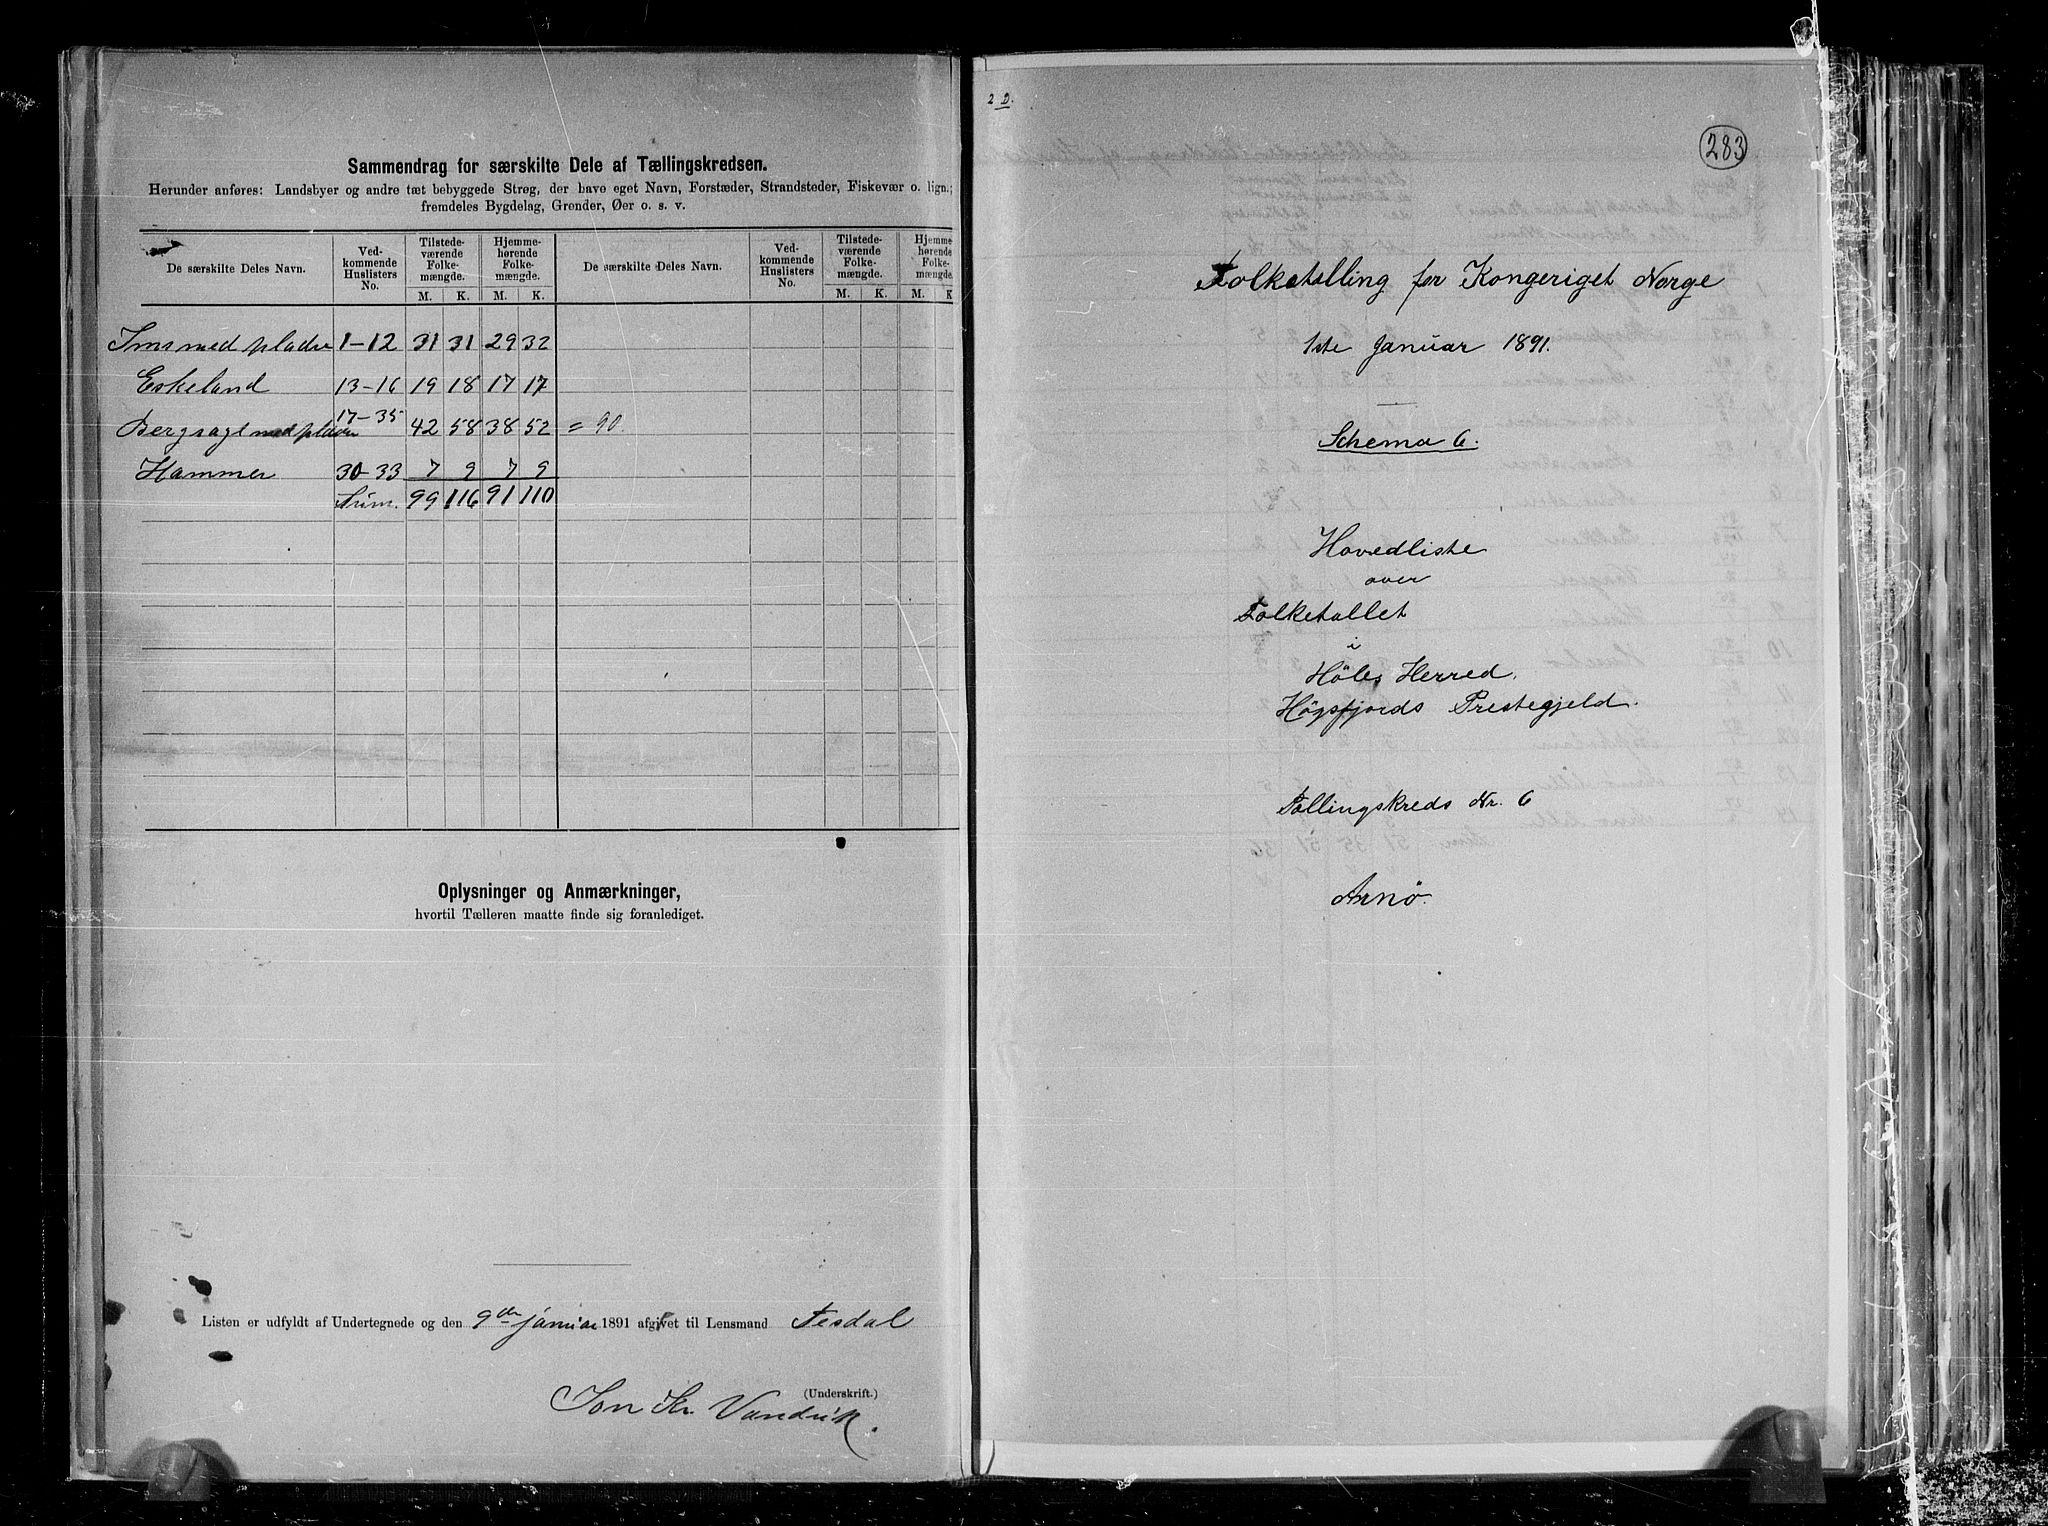 Sammendrag for særskilte Dele af Tællingskredsen.
Herunder anføres: Landsbyer og andre tæt bebyggede Strøg, der have eget Navn, Forstæder, Strandsteder, Fiskevær o. lign.;
fremdeles Bygdelag, Grender, Øer o. s. v.
De særskilte Deles Navn. Vedkommende Huslisters No. Tilstedeværende Folkemængde. M. K. Hjemmehørende Folkemængde. M. K. De særskilte Deles Navn. Vedkommende Huslisters No. Tilstedeværende Folkemængde. M. K. Hjemmehørende Folkemængde. M. K.
Ims med pladse 1-12 31 31 29 32
Eskeland 13-16 19 18 17 17
Bergsagl med pladse 17-35 42 58 38 52 = 90.
Hammer 30-33 7 9 7 9
Sum. 99 116 91 110
Oplysninger og Anmærkninger,
hvortil Tælleren maatte finde sig foranlediget.
Listen er udfyldt af Undertegnede og den 9de januar 1891 afgivet til Lensmand Tesdal
(Underskrift.)
Jon Kr. Vandvik.
2 D.
283
Folketælling for Kongeriget Norge
1ste Januar 1891.
Schema 6.
Hovedliste
over
Folketallet
i
Höles Herred.
Högsfjords Prestegjeld.
Tællingskreds Nr. 6
Arnö.